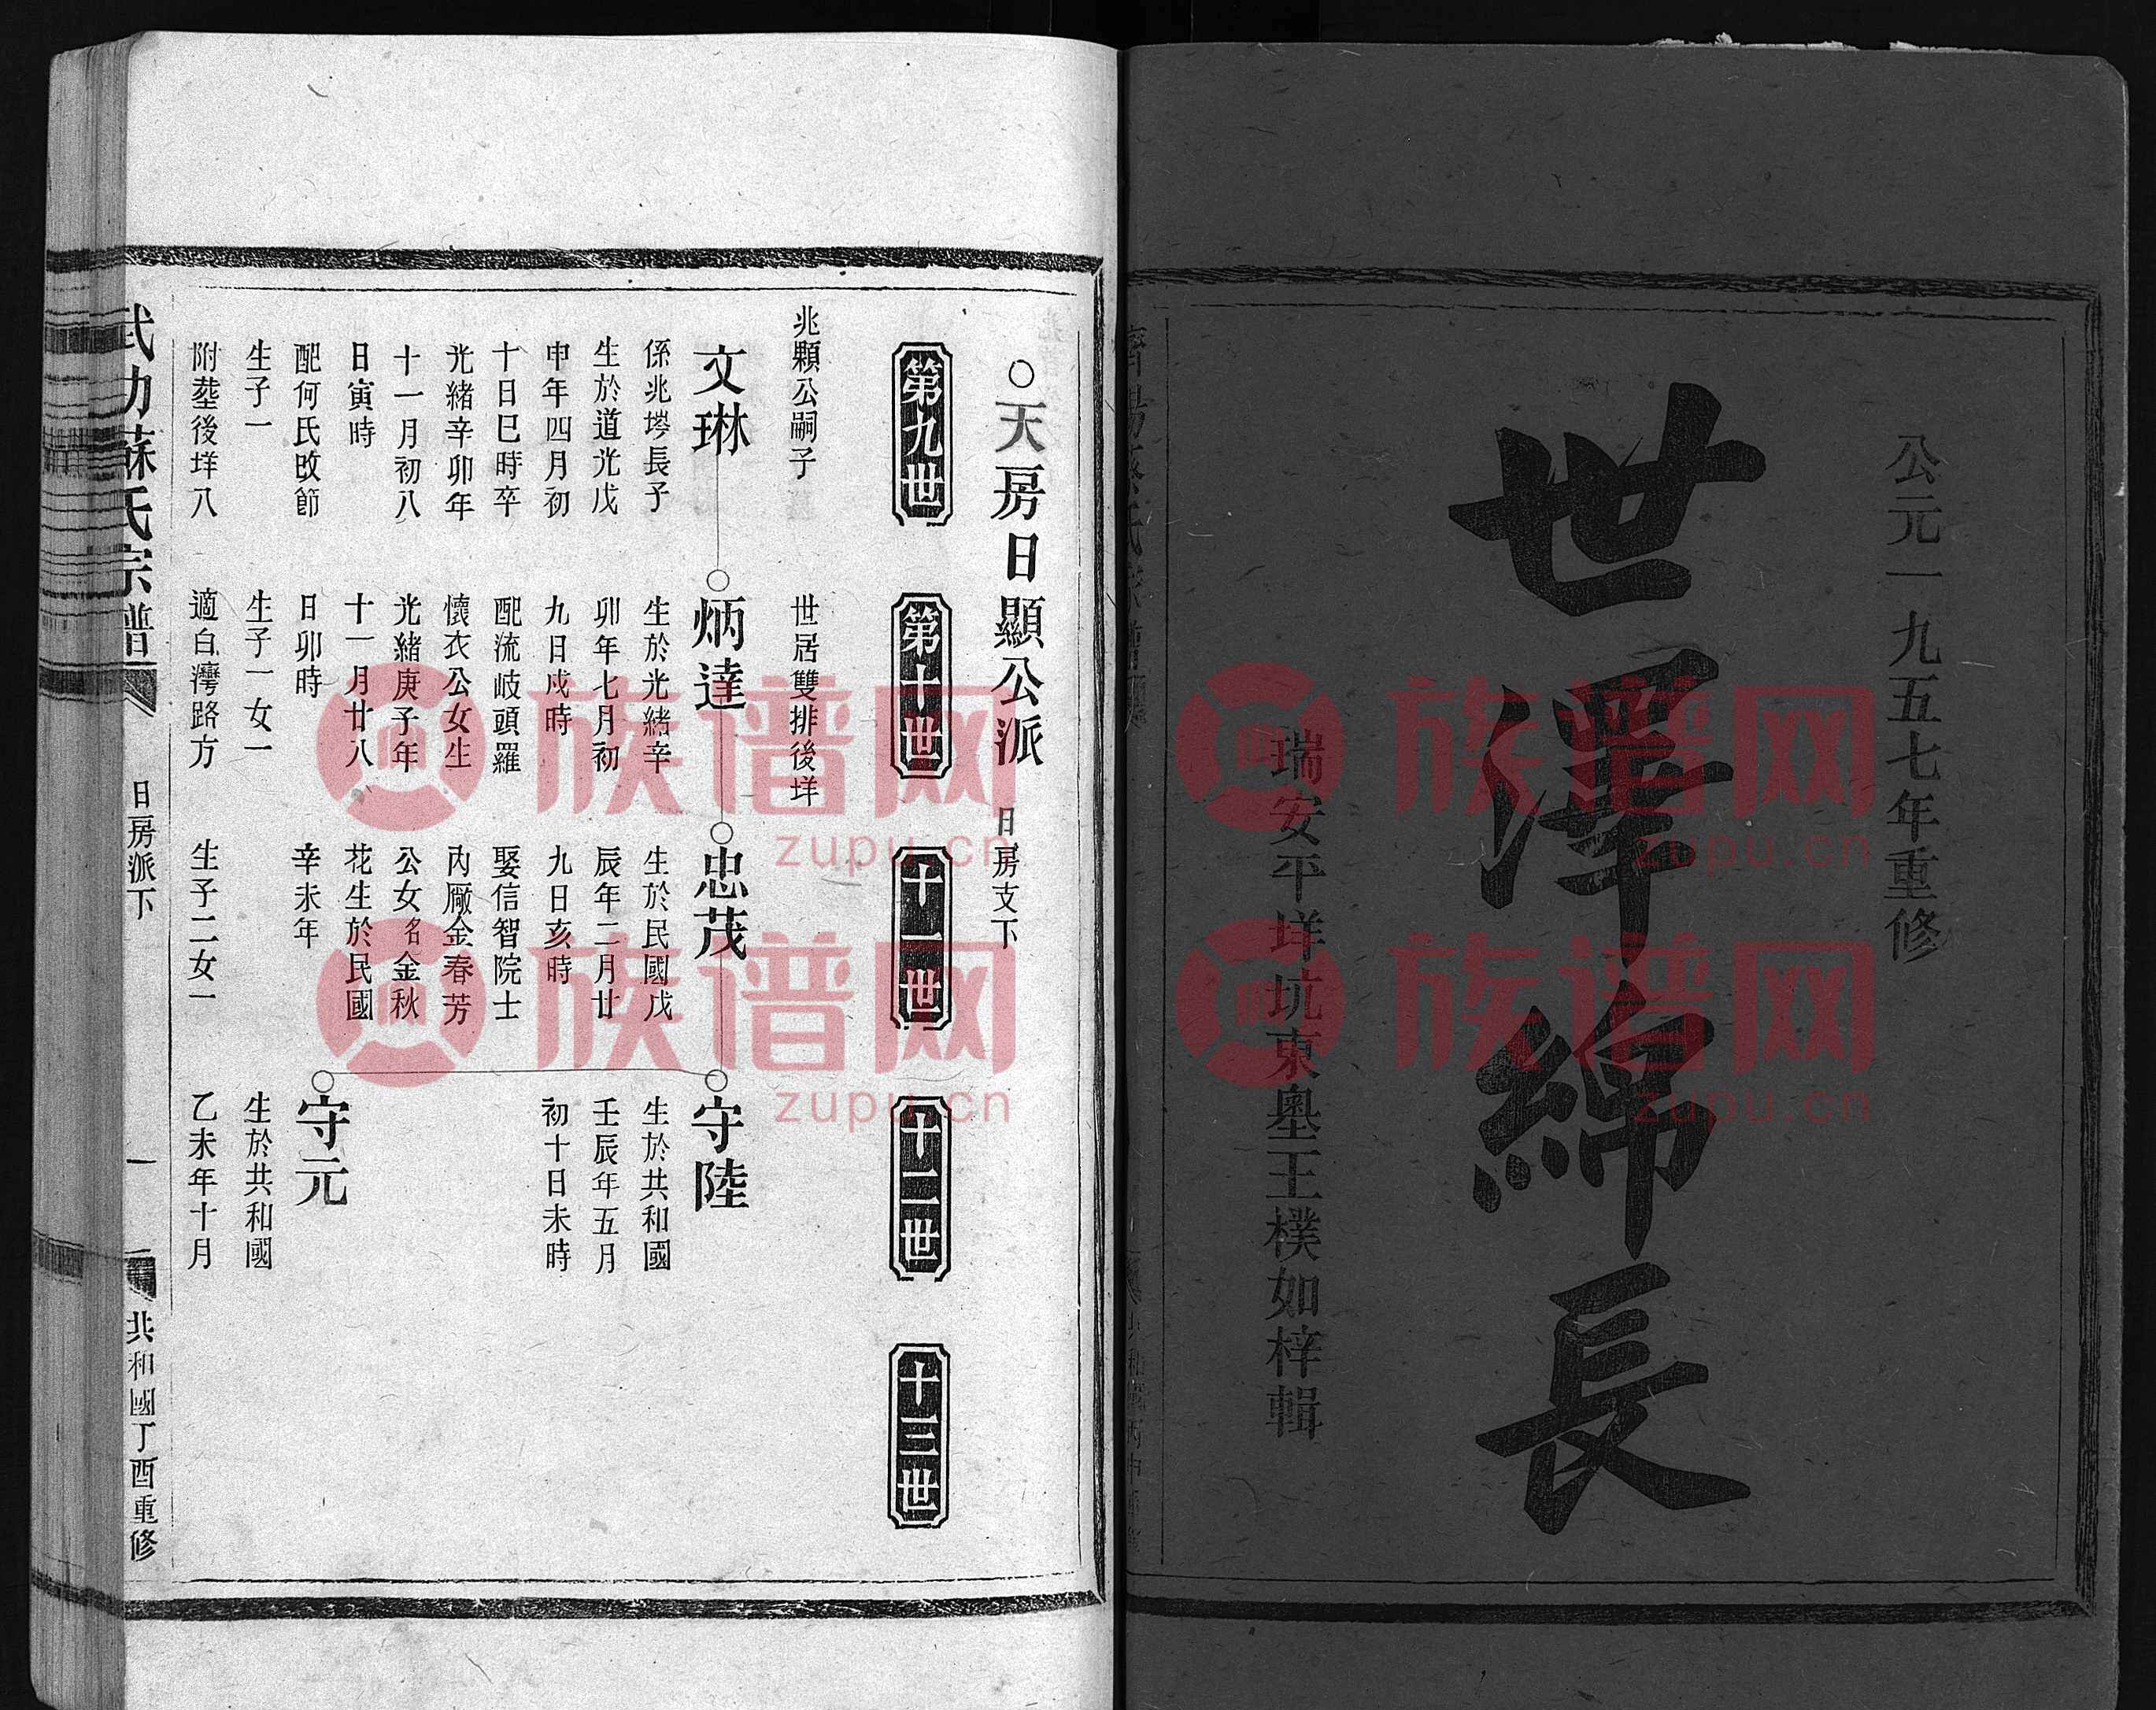 公元一九五七年重修
世澤綿長
瑞安平垟坑東墺王樸如梓輯
○天房日顯公派 日房支下
第九世
第十世
十一世
十二世
十三世
兆顆公嗣子
世居雙排後垟
文琳
係兆塝長子
生於道光戊
申年四月初
十日巳時卒
光緒辛卯年
十一月初八
日寅時
配何氏改節
生子一
附塟後垟八
炳達
生於光緒辛
卯年七月初
九日戌時
配流岐頭羅
懷衣公女生
光緒庚子年
十一月廿八
日卯時
生子一女一
適白灣路方
忠茂
生於民國戊
辰年二月廿
九日亥時
娶信智院士
內廠金春芳
公女名金秋
花生於民國
辛未年
生子二女一
守陸
生於共和國
壬辰年五月
初十日未時
守元
生於共和國
乙未年十月
武功蘇氏宗譜
日房派下
一
共和國丁酉重修
族谱网
zupu.cn
族谱网
zupu.cn
族谱网
zupu.cn
族谱网
zupu.cn